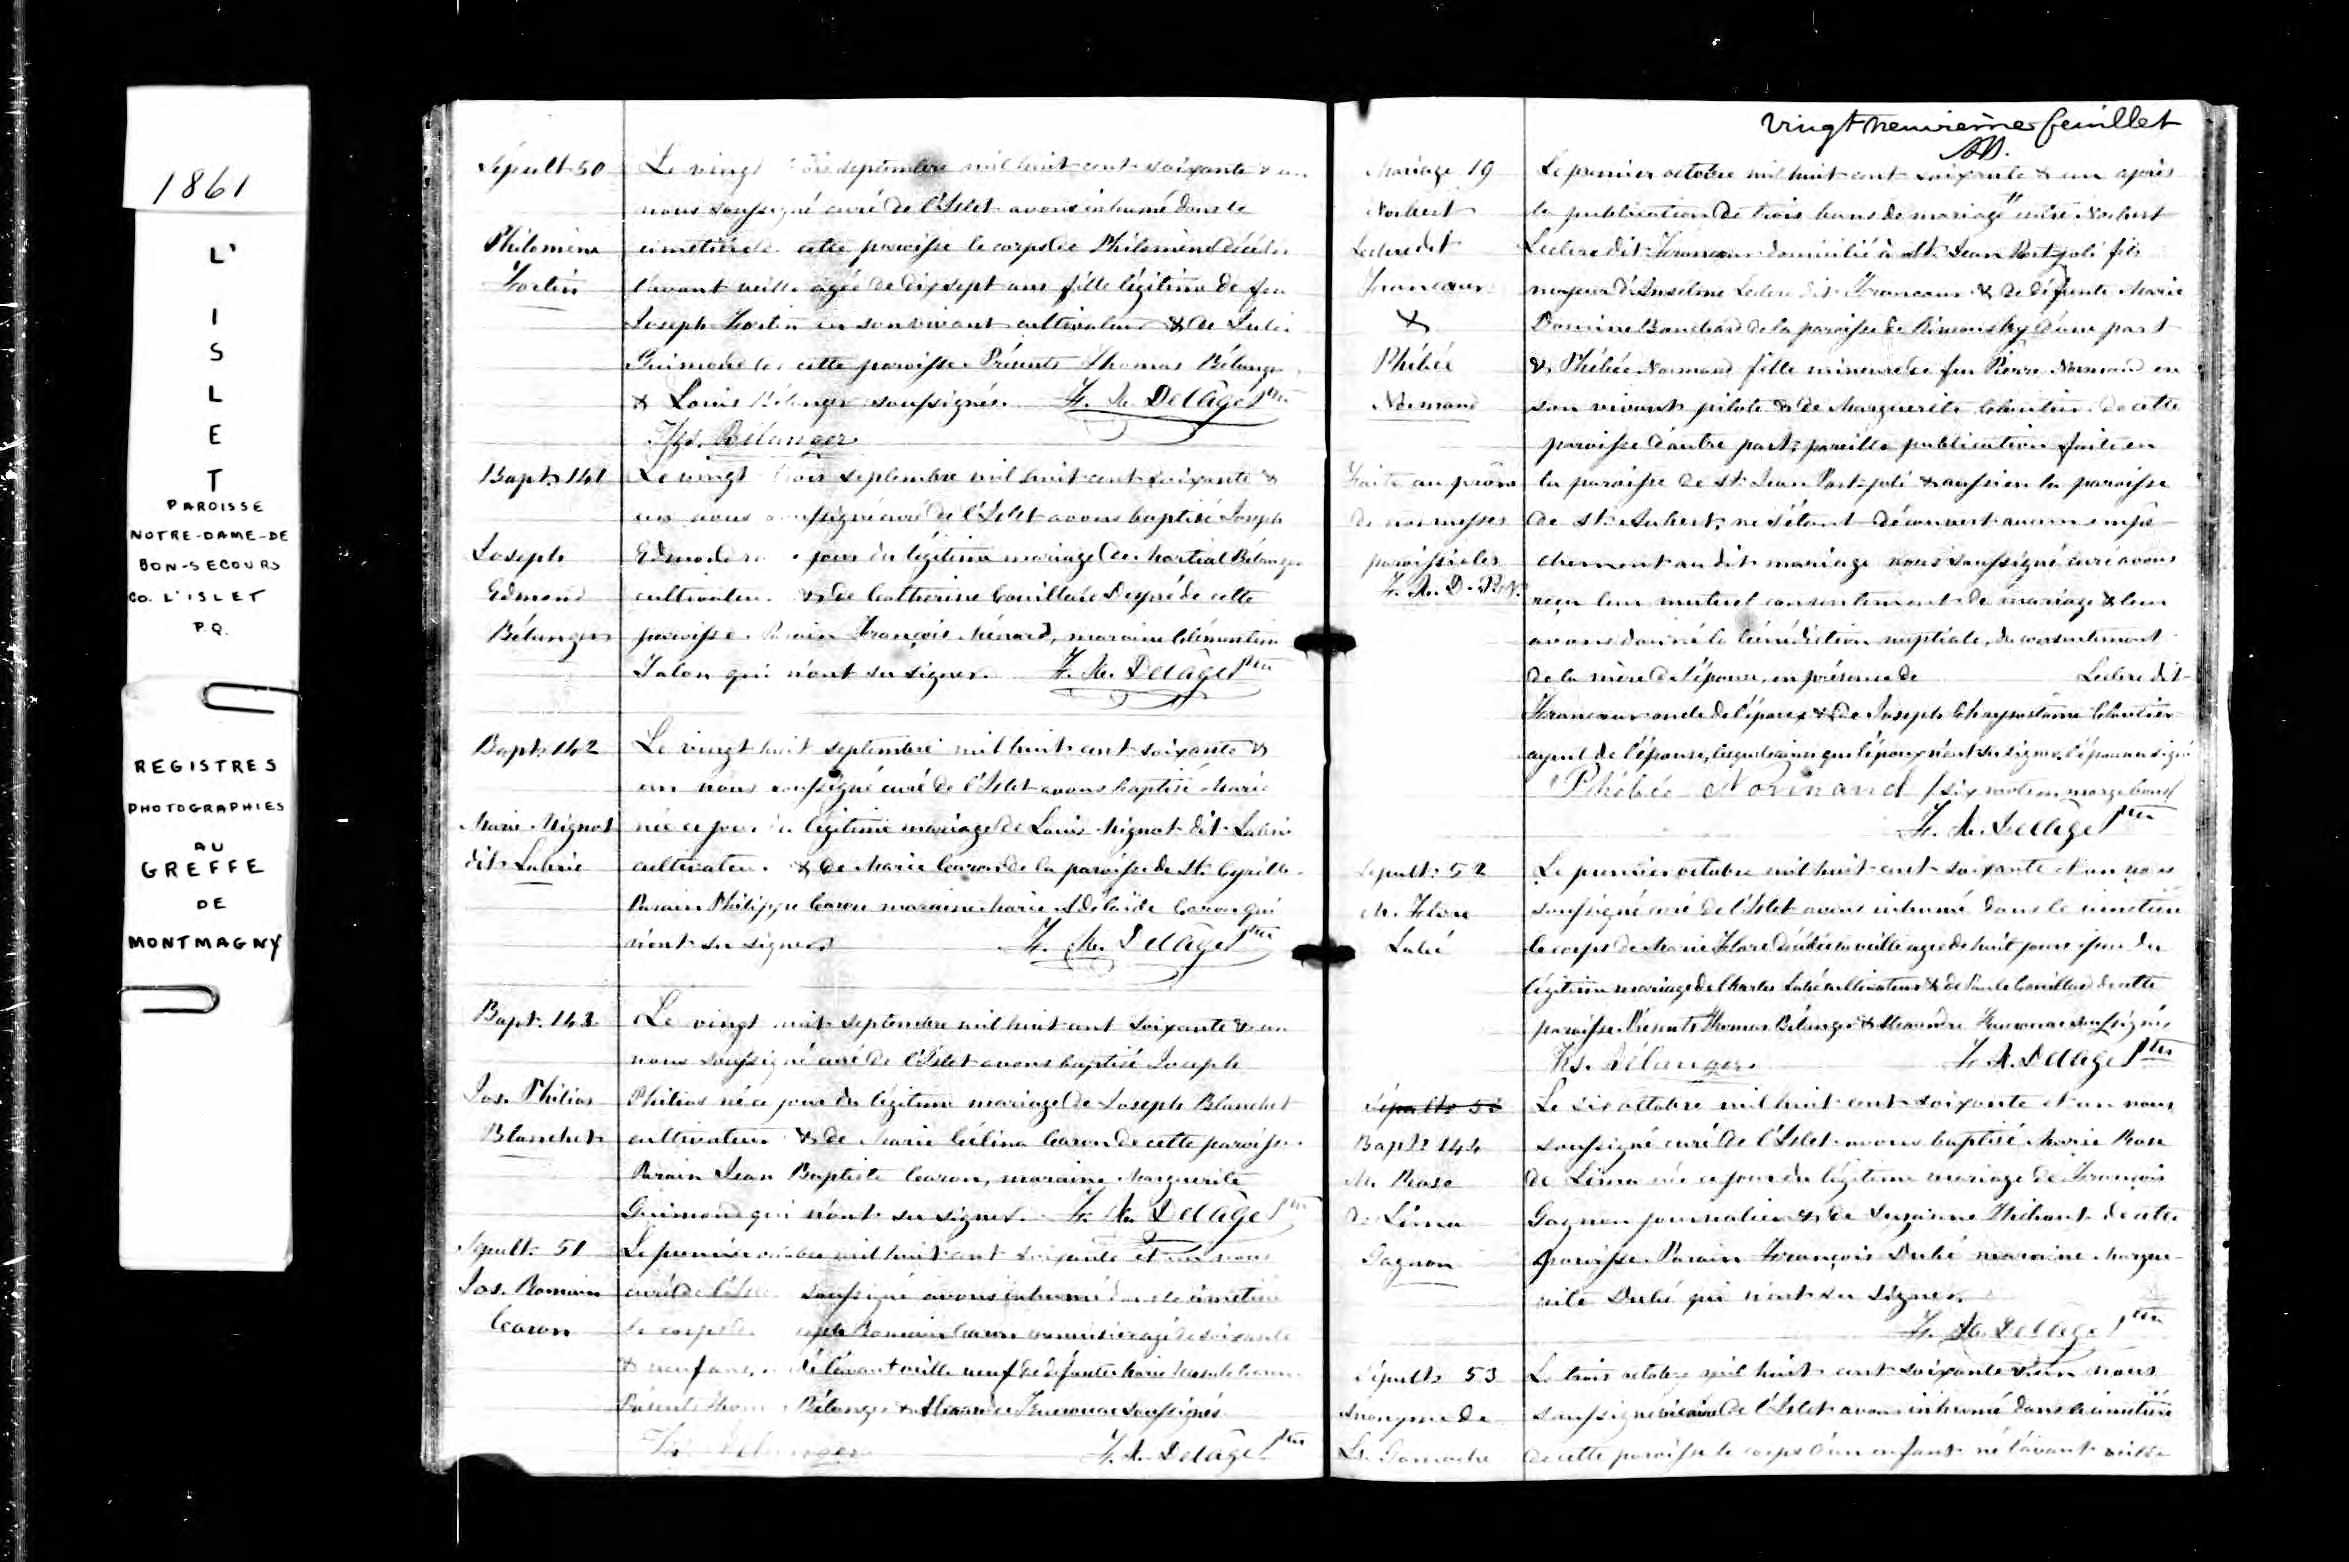 1861
L'
I
S
L
E
T
PAROISSE
NOTRE-DAME-DE
BON-SECOURS
CO. L'ISLET
P.Q.
REGISTRES
PHOTOGRAPHIÉS
AU
GREFFE
DE
MONTMAGNY
Sépult. 50
Philomène
Fortin
Le vingt septembre mil huit cent soixante & un
nous soussigné curé de l'Islet avons inhumé dans le
cimetière de cette paroisse le corps de Philomène décédée
l'avant veille âgée de dix sept ans fille légitime de feu
Joseph Fortin en son vivant cultivateur & de
Guimond de cette paroisse. Présents Thomas Bélanger
& Louis Bélanger soussignés. F. X. Delâge Ptre
Ths. Bélanger
Bapt. 141
Joseph
Edmond
Bélanger
Le vingt trois septembre mil huit cent soixante &
un nous soussigné curé de l'Islet avons baptisé Joseph
Edmond né ce jour du légitime mariage de Martial Bélanger
cultivateur & de Catherine Couillard Després de cette
paroisse. Parain François Ménard, maraine Clémentine
Talon qui n'ont su signer. F. X. Delâge Ptre
Bapt. 142
Marie Mignot
dit Labrie
Le vingt huit septembre mil huit cent soixante &
un nous soussigné curé de l'Islet avons baptisé Marie
née ce jour du légitime mariage de Louis Mignot dit Labrie
cultivateur & de Marie Caron de la paroisse de St. Cyrille.
Parain Philippe Caron maraine Marie Adélaïde Caron qui
n'ont su signer F. X. Delâge Ptre
Bapt. 143
Jos. Philias
Blanchet
Le vingt huit septembre mil huit cent soixante & un
nous soussigné curé de l'Islet avons baptisé Joseph
Philias né ce jour du légitime mariage de Joseph Blanchet
cultivateur & de Marie Célina Caron de cette paroisse.
Parain Jean Baptiste Caron, maraine Marguerite
Guimond qui n'ont su signer. F. X. Delâge Ptre
Sépult. 51
Jos. Romain
Caron
Le premier octobre mil huit cent soixante et un nous
curé de l'Islet soussigné avons inhumé dans le cimetière
le corps de Joseph Romain Caron menuisier âgé de soixante
& neuf ans, décédé l'avant veille veuf de défunte Marie
Présents Thomas Bélanger & Alexandre Kirouac soussignés
Ths. Bélanger F. X. Delâge Ptre
Vingt neuvième feuillet
Mariage 19
Norbert
Leclerc dit
Francoeur
&
Phébée
Normand
Faite au prône
de nos messes
paroissiales
F. X. D. Ptre
Le premier octobre mil huit cent soixante & un après
la publication de trois bans de mariage entre Norbert
Leclerc dit Francoeur domicilié à St. Jean Port-joli fils
majeur d'Anselme Leclerc dit Francoeur & de défunte Marie
Bouchard de la paroisse de Rimousky d'une part
& Phébée Normand fille mineure de feu Pierre Normand en
son vivant pilote & de Marguerite Cloutier de cette
paroisse d'autre part; pareille publication faite en
la paroisse de St. Jean Port-joli & aussi en la paroisse
de St. Aubert; ne s'étant découvert aucun empê-
chement au dit mariage nous soussigné curé avons
reçu leur mutuel consentement de mariage & leur
avons donné la bénédiction nuptiale, du consentement
de la mère de l'épouse, en présence de Leclerc dit
Francoeur oncle de l'époux & de Joseph Chrysostôme Cloutier
ayeul de l'épouse, lesquels ainsi que l'époux n'ont su signer. l'épouse a signé
Phébée Normand / six mots en marge bons /
F. X. Delâge Ptre
Sépult. 52
M. Flore
Lubé
Le premier octobre mil huit cent soixante et un nous
soussigné curé de l'Islet avons inhumé dans le cimetière
le corps de Marie Flore décédée la veille agée de huit jours issue du
légitime mariage de Charles cultivateur & de Couillard de cette
paroisse. Présents Thomas Bélanger & Alexandre Kirouac soussignés
Ths. Bélanger. F. X. Delâge Ptre
Sépult. 53
Bapt. 144
M. Rose
de Léma
Gagnon
Le six octobre mil huit cent soixante et un nous
soussigné curé de l'Islet avons baptisé Marie Rose
de Léma née ce jour du légitime mariage de François
Gagnon journalier & de Suzanne de cette
paroisse. Parain François Dubé maraine Margue-
rite Dubé qui n'ont su signer.
F. X. Delâge Ptre
Sépult. 53
Anonyme de
Ls. Gamache
Le trois octobre mil huit cent soixante & un nous
soussigné vicaire de l'Islet avons inhumé dans le cimetière
de cette paroisse le corps d'un enfant né l'avant veille